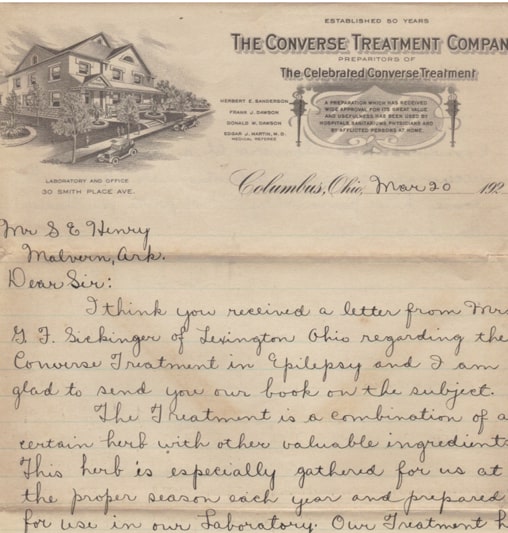 ESTABLISHED 50 YEARS
THE CONVERSE TREATMENT COMPAN
PREPARITORS OF
The Celebrated Converse Treatment
HERBERT E. SANDERSON
FRANK J. DAWSON
DONALD M. DAWSON
EDGAR J. MARTIN, M. D.
MEDICAL REFEREE
A PREPARATION WHICH HAS RECEIVED
WIDE APPROVAL FOR ITS GREAT VALUE
AND USEFULNESS HAS BEEN USED BY
HOSPITALS, SANITARIUMS, PHYSICIANS AND
BY AFFLICTED PERSONS AT HOME.
LABORATORY AND OFFICE
30 SMITH PLACE AVE.
Columbus, Ohio, Mar 20 192
Mr S E Henry
Malvern, Ark.
Dear Sir:
I think you received a letter from Mr
G. F. Sickinger of Lexington Ohio regarding the
Converse Treatment in Epilepsy and I am
glad to send you our book on the subject.
The Treatment is a combination of a
certain herb with other valuable ingredient
This herb is especially gathered for us at
the proper season each year and prepared
for use in our Laboratory. Our Treatment h